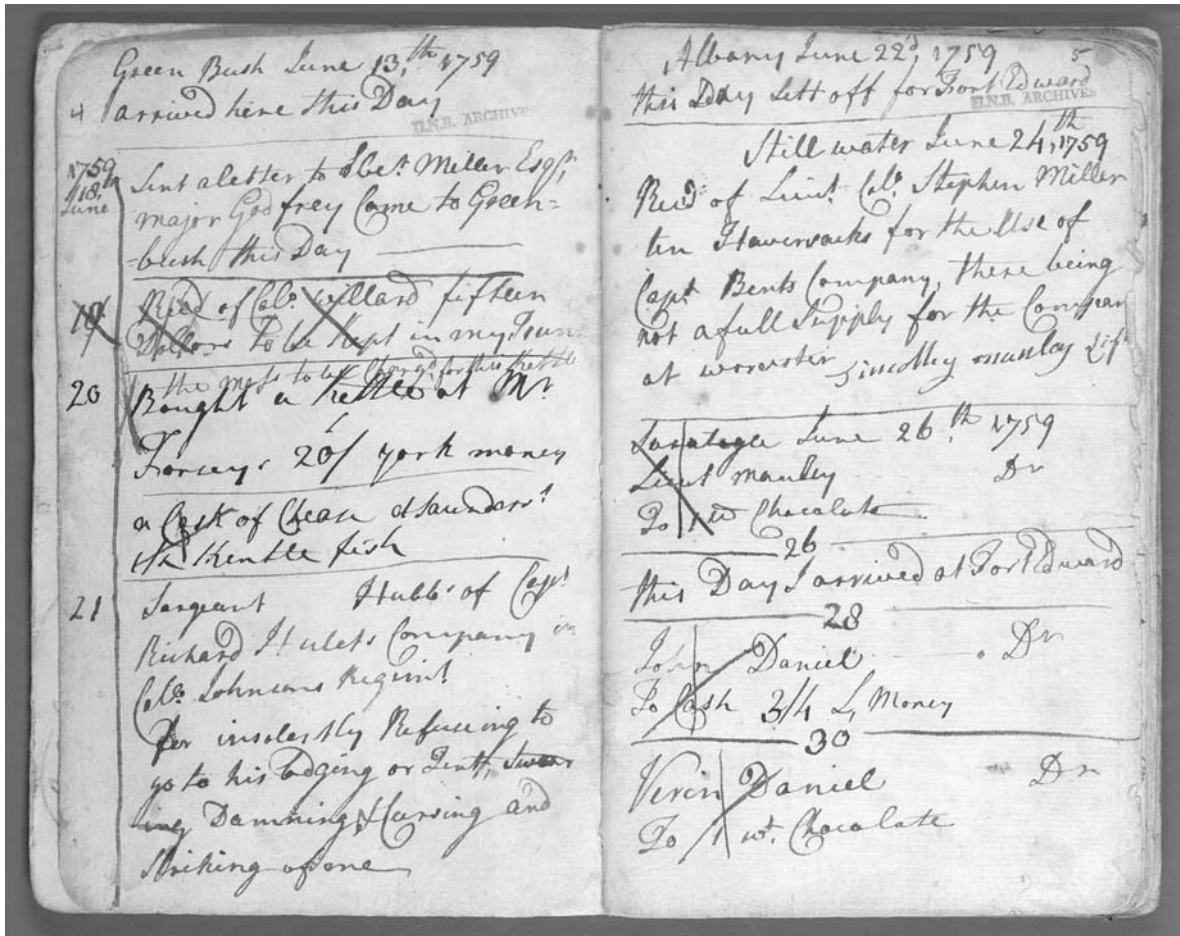 Green Bush June 13,th 1759
4 arrived here this Day
U.N.B. ARCHIVES
1759
18,th
June
Sent a letter to Ebe.r Miller Esq.r,
major Godfrey Came to Green=
=bush this Day
19 Rec'd of Col.o Willard fifteen
Dollors to be Kept in my
the mess to be Charg'd for this Kettle
20 Bought a Kettle at Mr
Forseys 20/ york money
a Cask of Chease at Saunders's
Kentle fish
21 Sargeant Hubbs of Capt
Richard Hulets Company in
Col.o Johnsons Regim.t
for insolestly Refusing to
go to his lodging or Tentt, Swear
ing Damning, & Cursing and
Striking of one
Albany June 22'd, 1759 5
this Day Sett off for Fort Edward
U.N.B. ARCHIVES
Still water June 24,th 1759
Rec'd of Lieut. Col.o Stephen Miller
ten Haversacks for the Use of
Capt Bents Company, there being
not a full Supply for the Company
at worcester
Saratoga June 26,th 1759
Lieut manley Dr
To 1 wt Chocolate
26
this Day I arrived at Fort Edward
28
John Daniel Dr
To Cash 3/4 L, Money
30
Verin Daniel Dr
To 1 wt. Chocolate